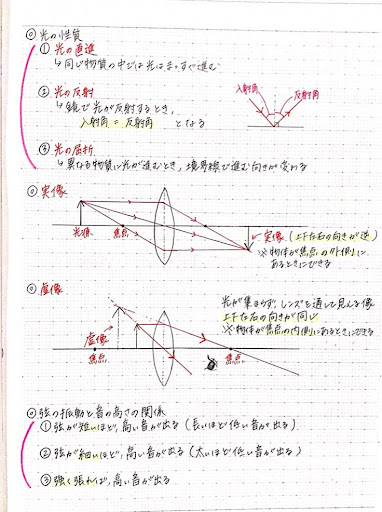 ◎ 光の性質
① 光の直進
↳ 同じ物質の中では光はまっすぐ進む
② 光の反射
↳ 鏡で光が反射するとき、
入射角 = 反射角 となる
入射角
反射角
③ 光の屈折
↳ 異なる物質に光が進むとき、境界線で進む向きが変わる
◎ 実像
光源
焦点
実像 (上下左右の向きが逆)
※ 物体が焦点の外側に
あるときにできる
◎ 虚像
光が集まらず、レンズを通して見える像
上下左右の向きが同じ
※ 物体が焦点の内側にあるときにできる
虚像
焦点
焦点
◎ 弦の振動と音の高さの関係
① 弦が短いほど、高い音が出る (長いほど低い音が出る)
② 弦が細いほど、高い音が出る (太いほど低い音が出る)
③ 強く張れば、高い音が出る